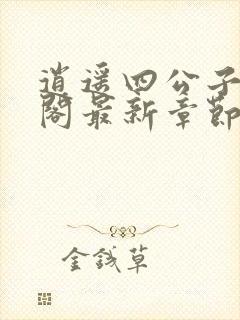 逍遥四公子
阁最新章节
金钱草